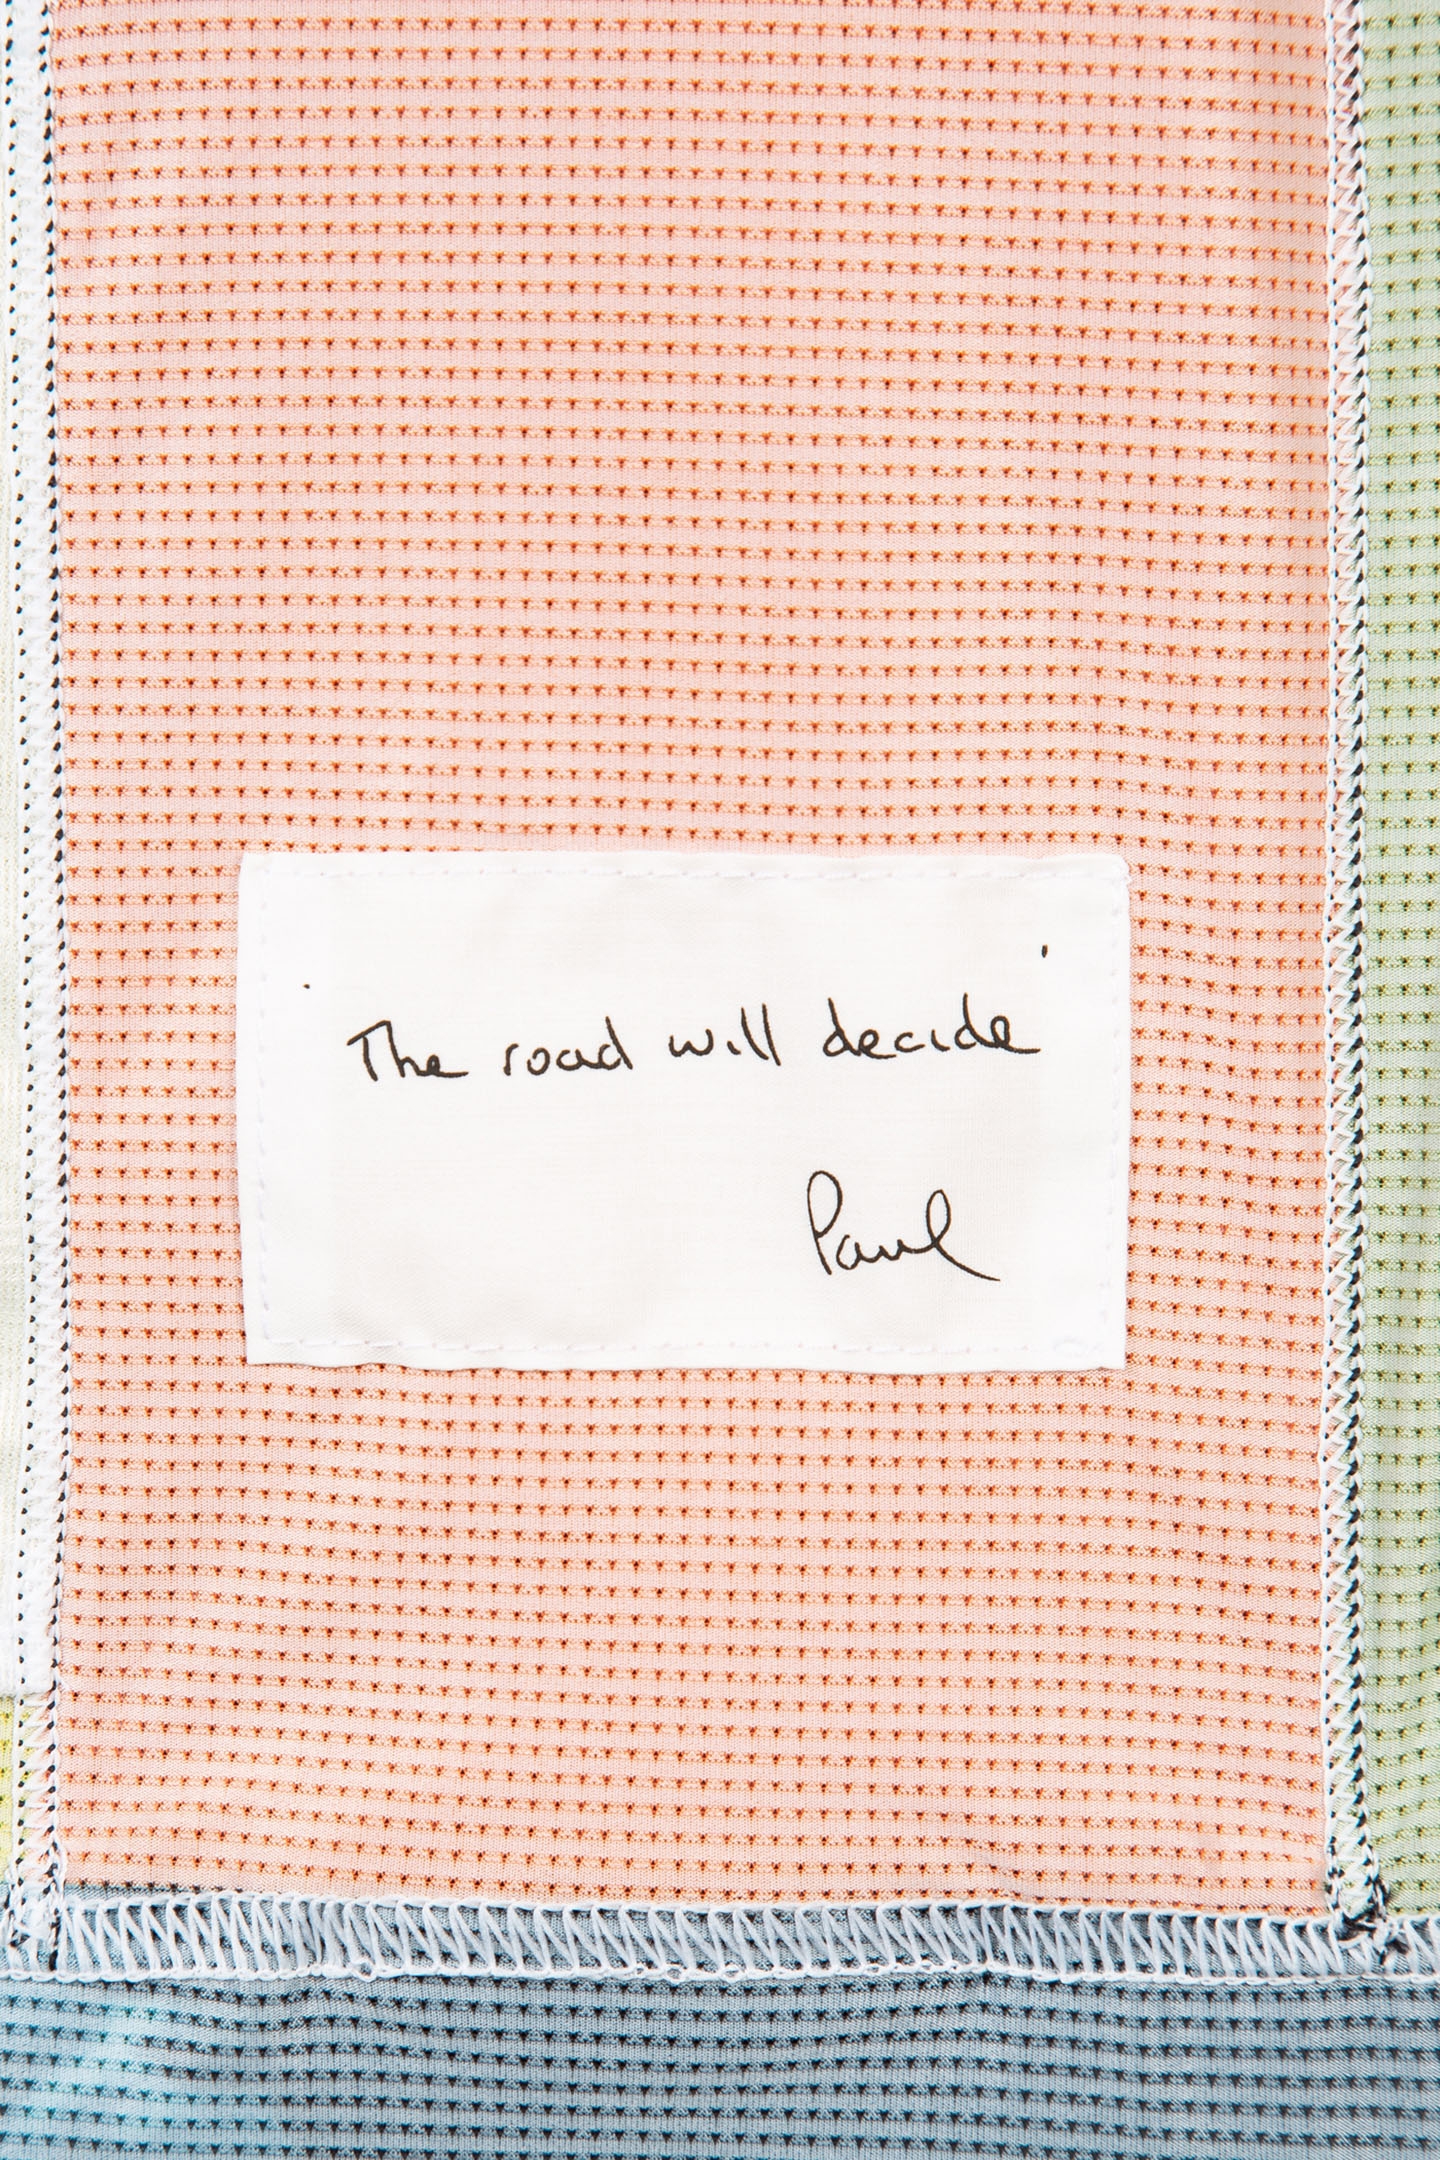 'The road will decide'
Paul